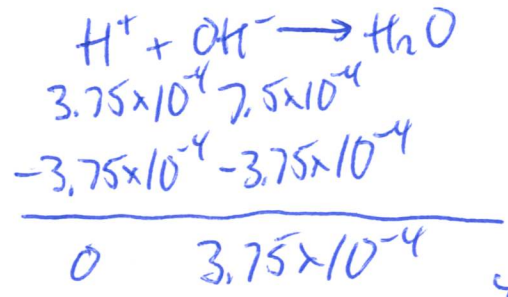 H⁺ + OH⁻ → H₂O
3.75x10⁻⁴ 7.5x10⁻⁴
-3.75x10⁻⁴ -3.75x10⁻⁴
0 3.75x10⁻⁴